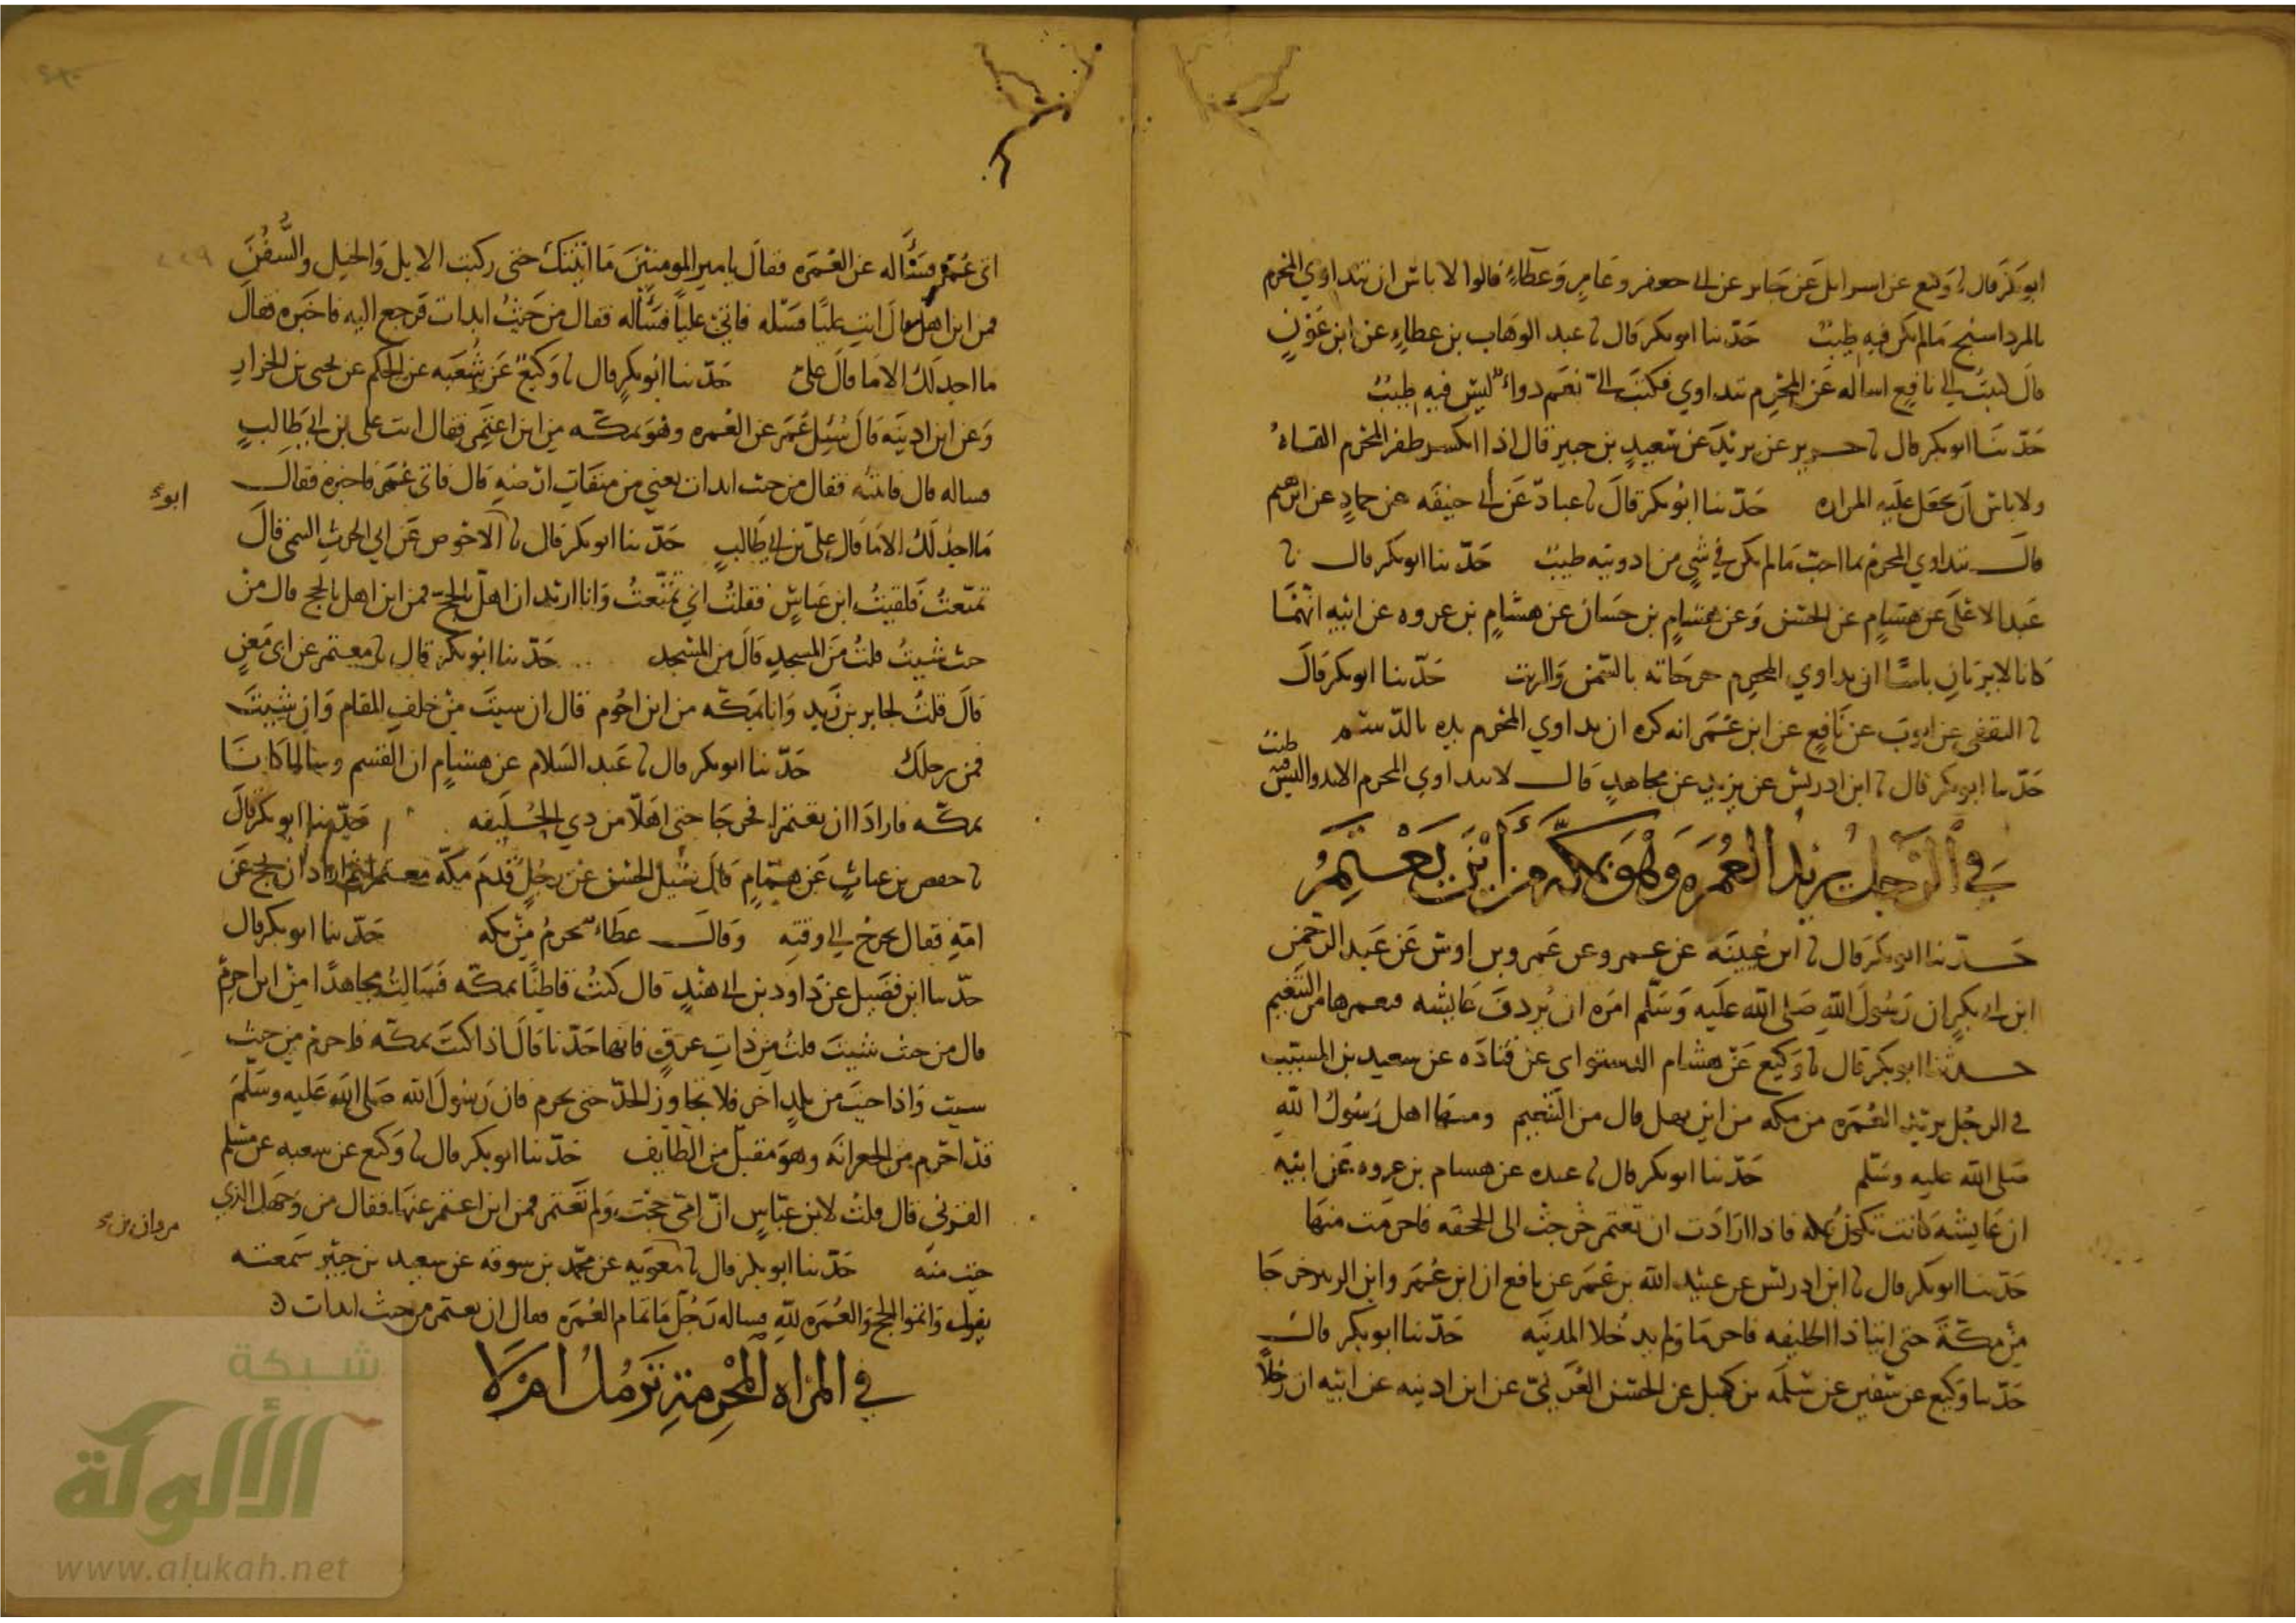 ابوبكر قال نا وكيع عن اسرايل عن جابر عن ابي جعفر وعامر وعطاء قالوا لا باس ان يتداوي المحرم
بالمرداسنج مالم يكن فيه طيب حدثنا ابوبكر قال نا عبد الوهاب بن عطاء عن ابن عون
قال كتبت الي نافع اساله عن المحرم يتداوي فكتب الي نعم دواء ليس فيه طيب
حدثنا ابوبكر قال نا جرير عن يزيد عن سعيد بن جبير قال اذا انكسر ظفر المحرم القاه
ولا باس ان يجعل عليه المراره حدثنا ابوبكر قال نا عباد عن أبي حنيفه عن حماد عن ابرهيم
قال يتداوي المحرم بما احب مالم يكن في شي من ادويته طيب حدثنا ابوبكر قال نا
عبد الاعلى عن هشام عن الحسن وعن هشام بن حسان عن هشام بن عروه عن ابيه انهما
كانا لا يريان باسا ان يداوي المحرم جرحاته بالسمن والزيت حدثنا ابوبكر قال
نا الثقفي عن ايوب عن نافع عن ابن عمر انه كره ان يداوي المحرم يده بالدسم
حدثنا ابوبكر قال نا ابن ادريس عن يزيد عن مجاهد قال لا يتداوي المحرم الا بدوا ليس فيه طيب
في الرجل يريد العمره وهو بمكة من أين يعتمر
حدثنا ابوبكر قال نا ابن عيينه عن عمرو عن عمرو بن اوس عن عبد الرحمن
ابن ابي بكر ان رسول الله صلى الله عليه وسلم امره ان يردف عايشه فيعمرها من التنعيم
حدثنا ابوبكر قال نا وكيع عن هشام الدستواي عن قتاده عن سعيد بن المسيب
في الرجل يريد العمره من مكه من اين يهل قال من التنعيم ومنها اهل رسول الله
صلى الله عليه وسلم حدثنا ابوبكر قال نا عبده عن هشام بن عروه عن ابيه
ان عايشه كانت تكون بمكه فاذا ارادت ان تعتمر خرجت الى الجحفه فاحرمت منها
حدثنا ابوبكر قال نا ابن ادريس عن عبيد الله بن عمر عن نافع ان ابن عمر وابن الزبير خرجا
من مكة حتى اتيا ذا الحليفه فاحرما ولم يدخلا المدينه حدثنا ابوبكر قال
حدثنا وكيع عن سفين عن سلمه بن كهيل عن الحسن العرني عن ابن اذينه عن ابيه ان رجلا
اتى عمر فسأله عن العمره فقال يا امير المومنين ما اتيتك حتى ركبت الابل والخيل والسفن
فمن اين اهل قال ايت عليا فسله فاتى عليا فسأله فقال من حيث ابدات فرجع اليه فاخبره فقال
ما اجد لك الا ما قال علي حدثنا ابوبكر قال نا وكيع عن شعبه عن الحكم عن يحيى بن الجزار
وعن ابن اذينه قال سيل عمر عن العمره وهو بمكه من اين اعتمر فقال ايت علي بن ابي طالب
فساله قال فاتيته فقال من حيث ابدات يعني من ميقات ارضه قال فاتى عمر فاخبره فقال
ما اجد لك الا ما قال علي بن ابي طالب حدثنا ابوبكر قال نا ابو الاحوص عن ابي الحرث التيمي قال
تمتعت فلقيت ابن عباس فقلت اني تمتعت وانا اريد ان اهل بالحج فمن اين اهل بالحج قال من
حيث شيت قلت من المسجد قال من المسجد حدثنا ابوبكر قال نا معتمر عن ابي معن
قال قلت لجابر بن زيد وانا بمكه من اين احرم قال ان شيت من خلف المقام وان شيت
فمن رحلك حدثنا ابوبكر قال نا عبد السلام عن هشام ان القسم وسالما كانا
بمكه فارادا ان يعتمرا فخرجا حتى اهلا من ذي الحليفه حدثنا ابوبكر قال
نا حفص بن غياث عن هشام قال سيل الحسن عن رجل قدم مكة معتمرا ثم اراد ان يحج عن
امه فقال يخرج الي وقته وقال عطاء يحرم من مكه حدثنا ابوبكر قال
حدثنا ابن فضيل عن داود بن ابي هند قال كنت قاطنا بمكه فسالت مجاهدا من اين احرم
قال من حيث شيت قلت من ذات عرق فانها حدنا قال اذا كنت بمكه فاحرم من حيث
شيت واذا جيت من بلد اخر فلا تجاوز الحد حتى تحرم فان رسول الله صلى الله عليه وسلم
قد احرم من الجعرانه وهو مقبل من الطايف حدثنا ابوبكر قال نا وكيع عن شعبه عن مسلم
القري قال قلت لابن عباس ان امي حجت ولم تعتمر فمن اين اعتمر عنها فقال من وجهك الذي
جيت منه حدثنا ابوبكر قال نا مروان بن معويه عن محمد بن سوقه عن سعيد بن جبير سمعته
يقول واتموا الحج والعمره لله فساله رجل ما تمام العمره فقال ان يعتمر من حيث ابدات
في المراه المحرمة ترمل ام لا